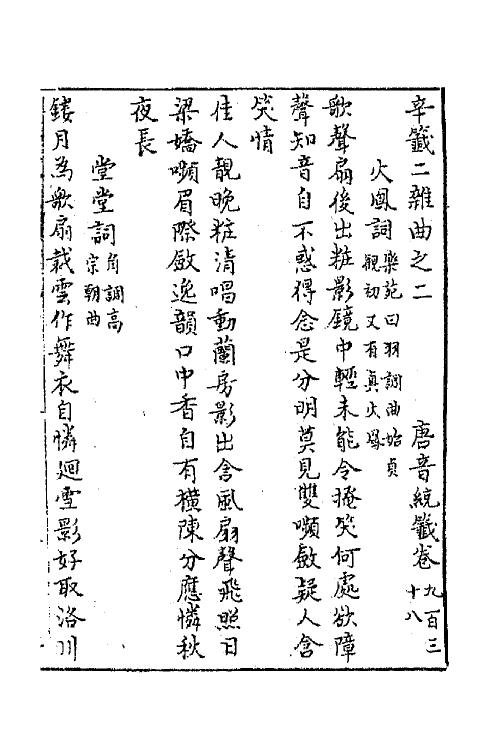 辛籤二雜曲之二　唐音統籤卷九百三十八
火鳳詞樂苑曰羽調曲始貞觀初又有真火鳳
歌聲扇後出粧影鏡中輕未能令掩笑何處欲障
聲知音自不惑得念是分明莫見雙嚬斂疑人含
笑情
佳人靚晚粧清唱動蘭房影出含風扇聲飛照日
梁嬌嚬眉際斂逸韻口中香自有橫陳分應憐秋
夜長
堂堂詞角調高宗朝曲
鏤月為歌扇裁雲作舞衣自憐迴雪影好取洛川